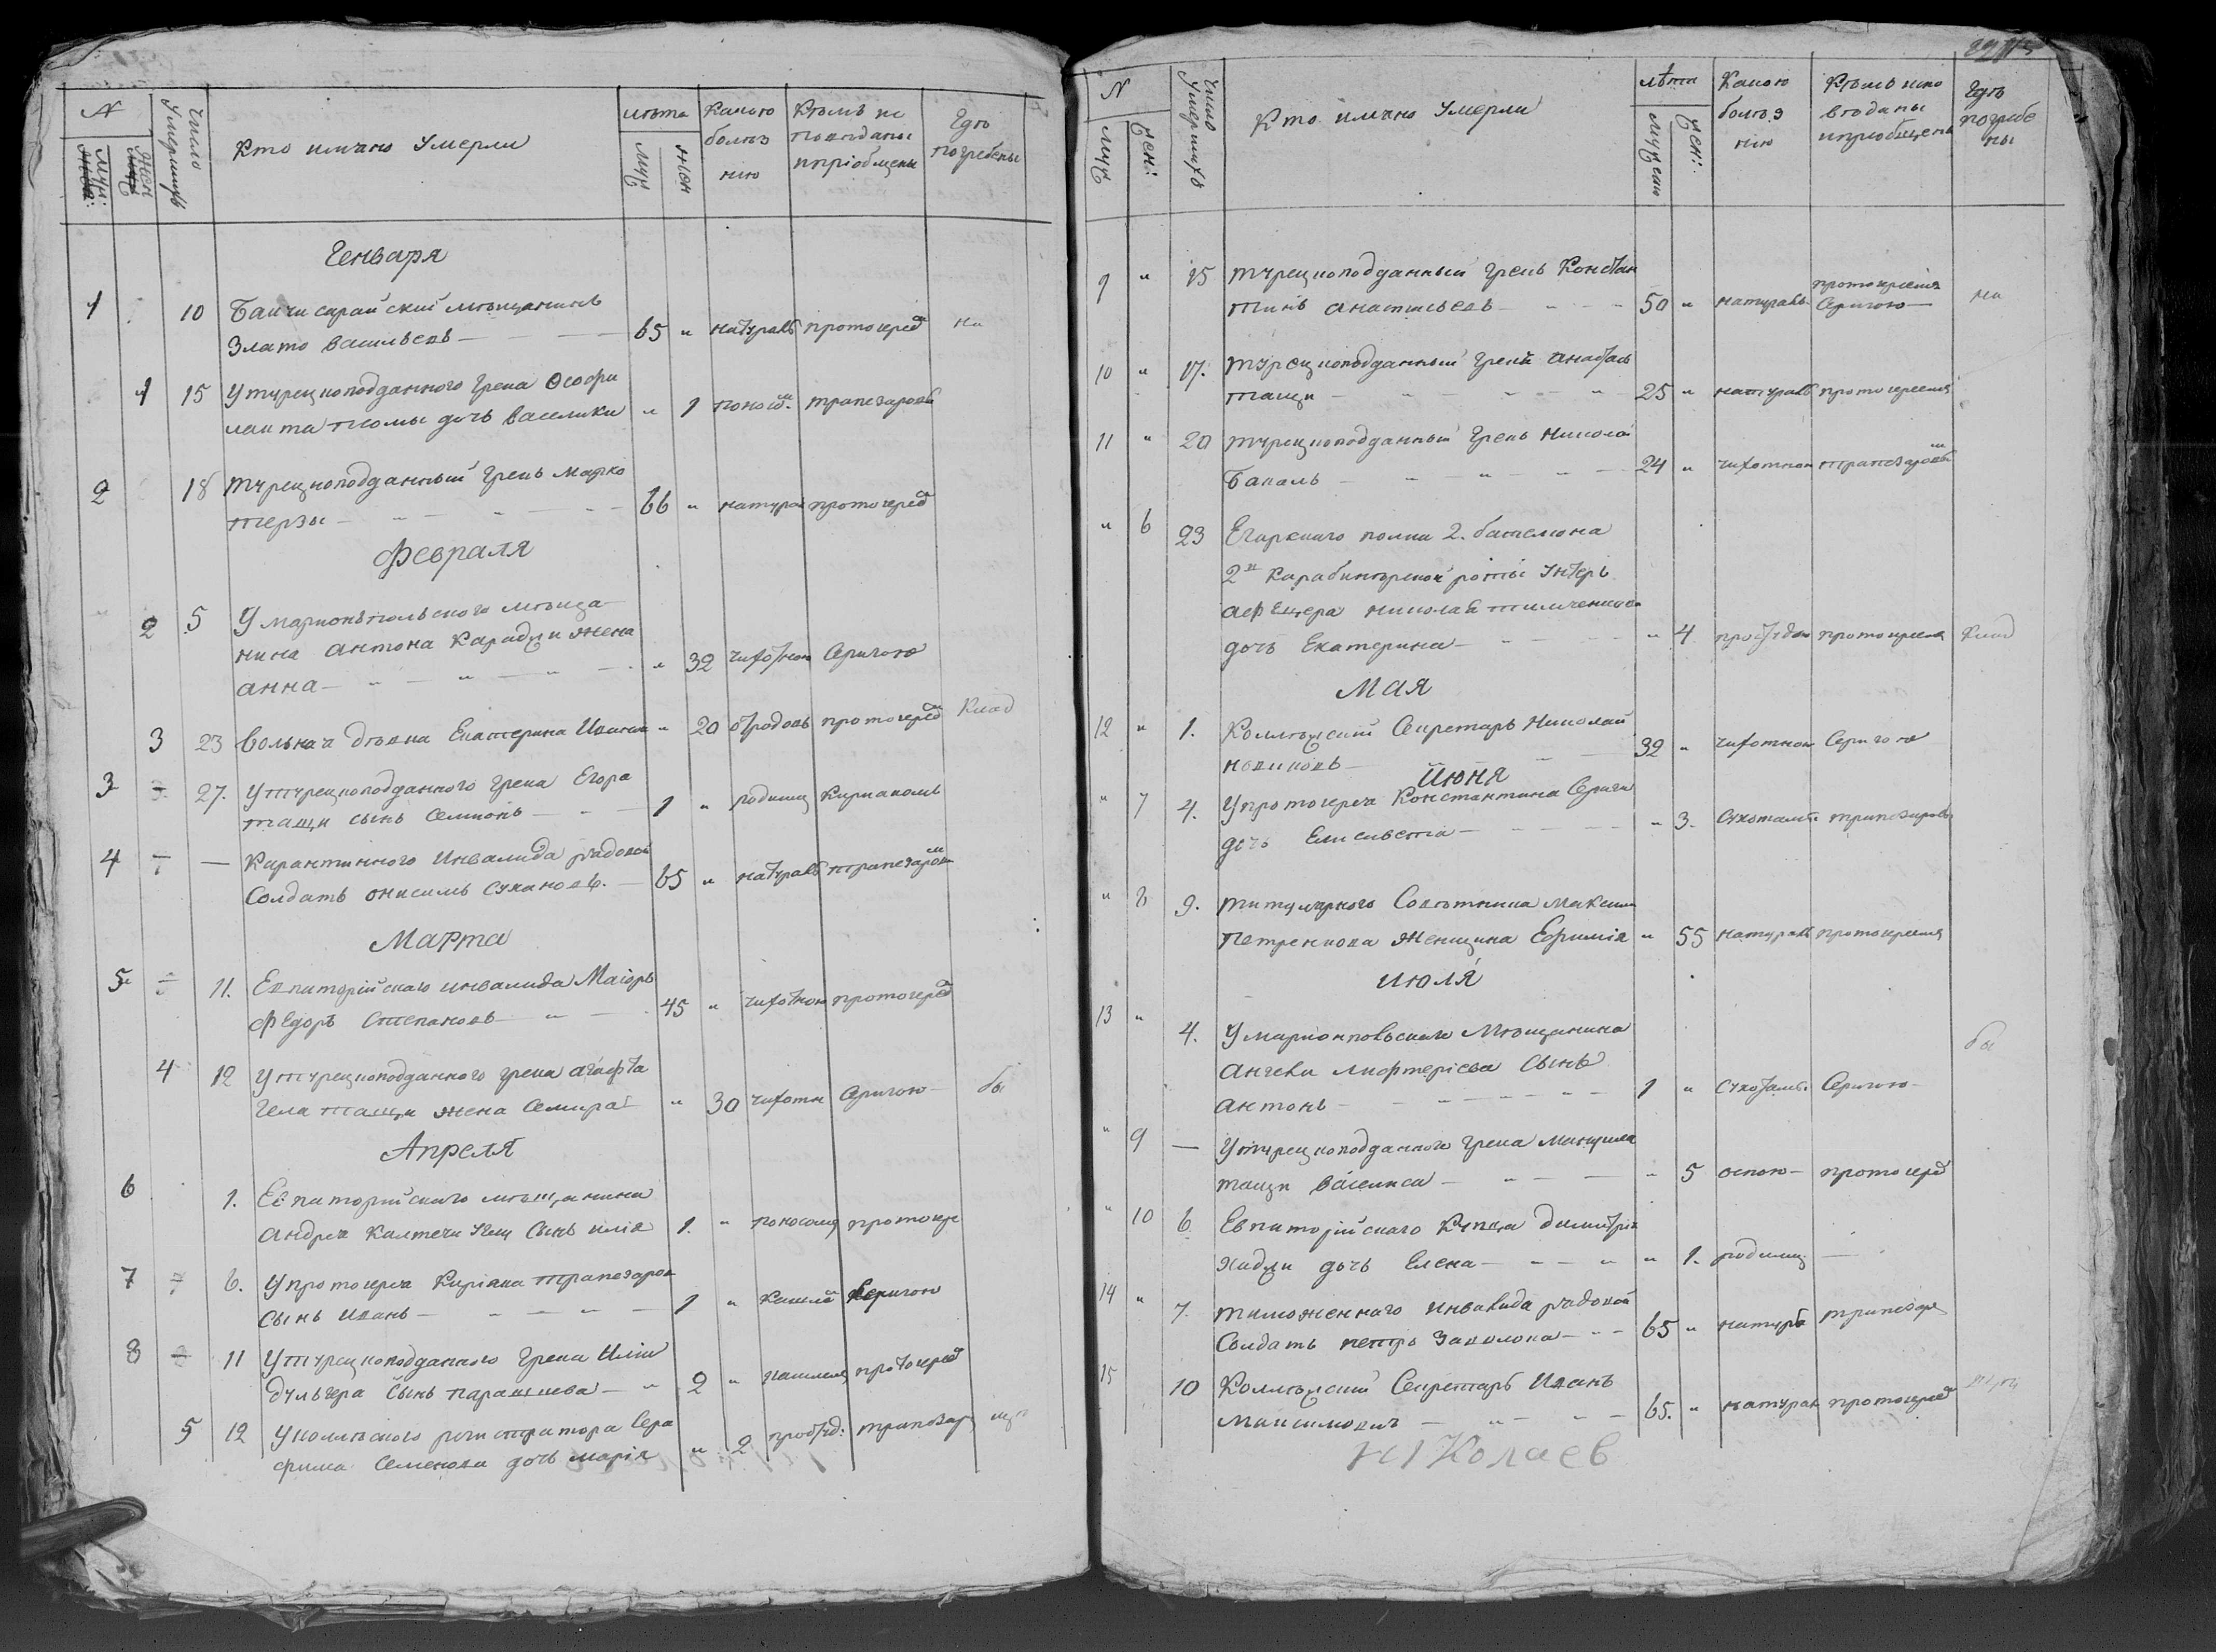 N
Муж:
Жен
Число Умершихъ
Кто имянно Умерли
лѣта
Муж
Жен
Какою болѣзнію
Кѣмъ ис повѣданы и пріобщены
Гдѣ погребены
Генваря
1 10 Бахчисарайский мѣщанинъ
Злато Васильевъ — 65 " натураль протоиерей на
1 15 У турецкоподданного Грека Феофи
лакта томы дочь Василики " 1 поносом трапезаровъ
2 18 турецкоподданный Грекъ Марко
терзы — 66 " натурал протоиерей
Февраля
2 5 У мариопольского мѣща
нина Антона Караджи жена
Анна — " 32 чихотною Сергиею
3 23 вольная дѣвка Екатерина " 20 отродовъ протоиерей Клад
3 27. У турецкоподданного Грека Егора
тащи сынъ Семионъ — 1 " родимц Кириакомъ
4 — Карантинного Инвалида рядовой
Солдатъ Онисимъ Сухановъ. — 65 " натураль трапезаром
Марта
5 11. Евпаторійскаго инвалида Маіоръ
Федоръ Степановъ — 45 " чихотною протоиерей
4 12 У турецкоподданного грека
тащи жена " 30 чихотн Сергиею — бы
Апреля
6 1. Евпаторійскаго мѣщанина
Андрея сынъ илія 1. " поносомъ протоиер
7 6. У протоиерея Киріяка трапезаров
сынъ Иванъ — 1 " Кашле Сергиею
8 11 У турецкоподданного Грека Иліи
дульгера Сынъ парашкева — 2 " кашлемъ протоиерей
5 12 У колежского регистратора Сера
фима Семенова дочь марія " 2 простуд: трапезар
N
Муж
Жен:
Число Умершихъ
Кто имяно Умерли
лѣта
Мужеск
Жен:
Какою болѣз нію
Кѣмъ испо вѣданы и пріобщены
Гдѣ погребе ны
9 " 15 турецкоподданный Грекъ Констан
тинъ 50 " натураль протоиереем Сергиею — на
10 " 17. турецкоподданный Грекъ Анастас
тащи — 25 " натураль протоиереем
11 " 20 турецкоподданный Грекъ Никола
Бакаль — 24 " чихотною трапезаровъ
" 6 23 Егарскаго полка 2. бателиона
2й Карабинерной роты Унтеръ
афецера Николая
дочь Екатерина — " 4 простудою протоиереем Клад
Мая
12 " 1. Коллежский Секретарь Николай
Новиковъ — 32 " чихотною Сергиею
Июня
" 7 4. У протоиерея Константина Сергиа
дочь Елисавета — " 3. Сухотамъ трапезаровъ
" 8 9. титулярного Советника Максима
Петренкова Женщина Ефимія " 55 натураль протоиереем
июля
13 " 4. У Мещанина
Сынъ
Антонъ — 1 " Сухотамъ Сергиею — бы
" 9 — У турецкоподданного Грека
тащи — " 5 оспою — протоиерей
" 10 6 Евпаторійскаго Купца Димитрія
Хаджи дочь Елена — " 1. родимц —
14 " 7. таможеннаго инвалида рядовой
Солдатъ петръ — 65 " натурал трапезар
15 10 Коллежский Секретарь Иванъ
Максимовичъ — 65. " натурал протоиерей
НIКолаев